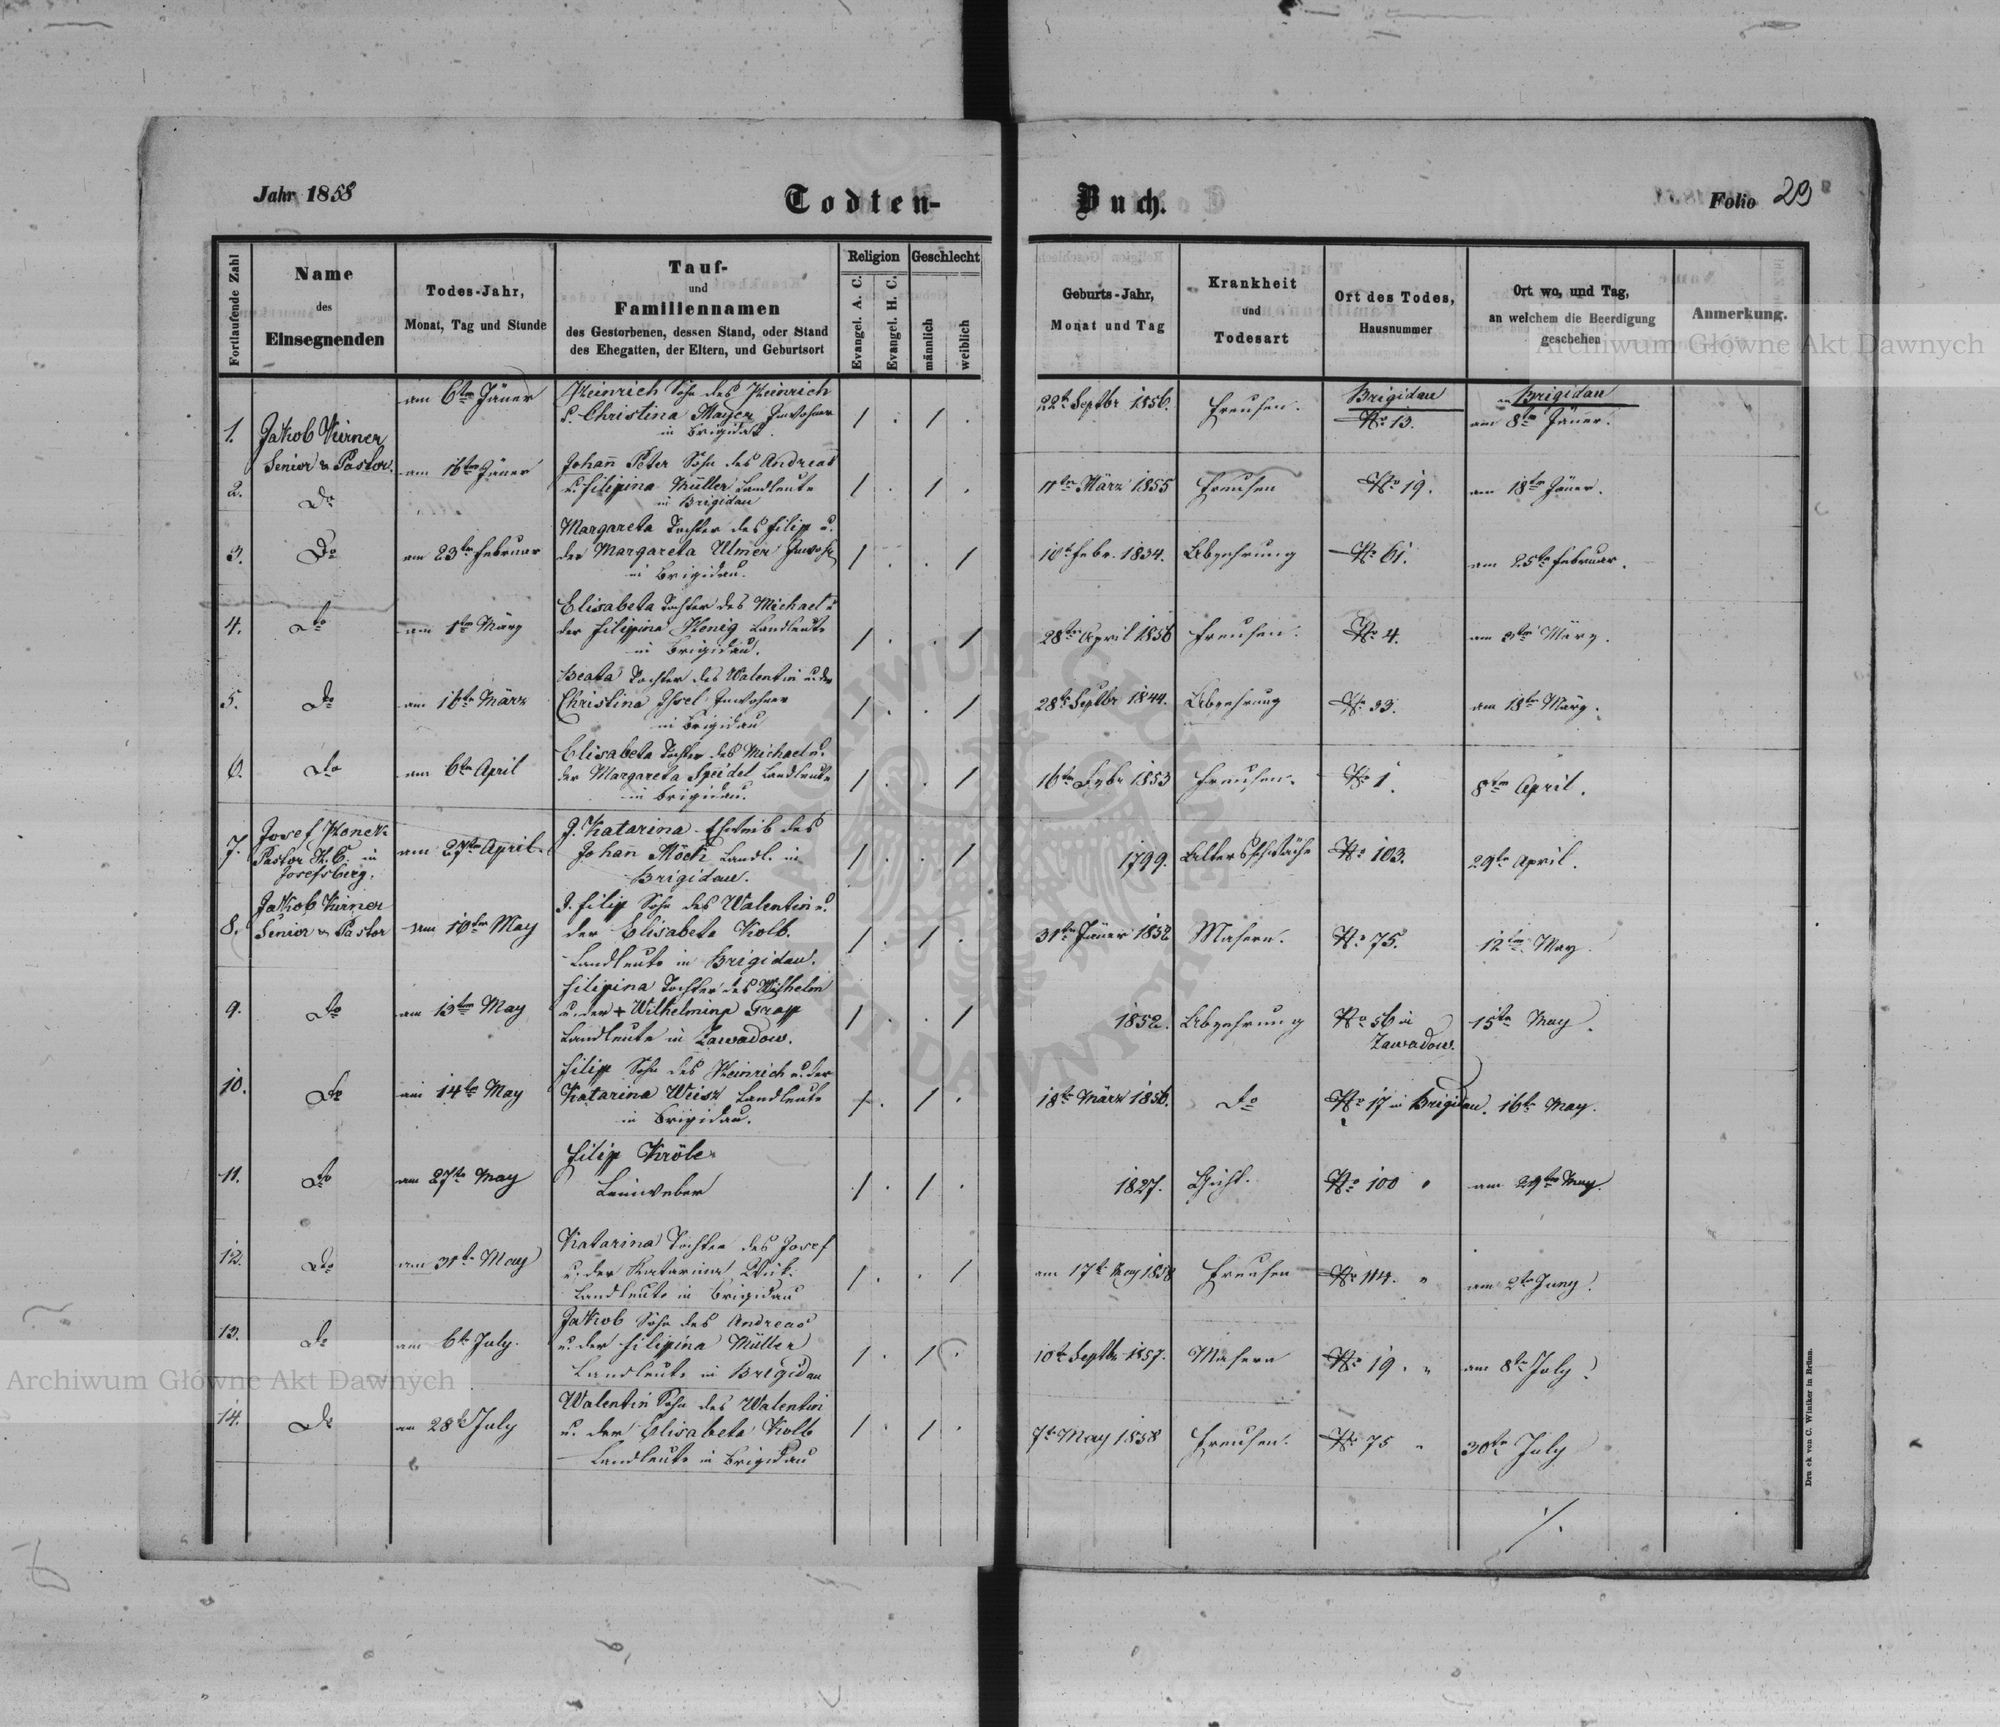 Jahr 1858
Todten-
Buch.
Folio 29
Fortlaufende Zahl
Name
des
Einsegnenden
Todes-Jahr,
Monat, Tag und Stunde
Tauf-
und
Familiennamen
des Gestorbenen, dessen Stand, oder Stand
des Ehegatten, der Eltern, und Geburtsort
Religion
Evangel. A. C.
Evangel. H. C.
Geschlecht
männlich
weiblich
Geburts-Jahr,
Monat und Tag
Krankheit
und
Todesart
Ort des Todes,
Hausnummer
Ort wo, und Tag,
an welchem die Beerdigung
geschehen
Anmerkung.
1.
Jakob Kürner
Senior u. Pastor.
am 6ten Jäner
Heinrich Sohn des Heinrich
u. Christina Mayer Inwohner
in Brigidau.
/ . / .
22t. Septbr 1856.
Freusen.
Brigidau
No 13.
in Brigidau
am 8ten Jäner.
2.
Do
am 16ten Jäner
Johann Peter Sohn des Andreas
u. Filipina Müller Landleute
in Brigidau
/ . / .
11ten März 1855
Freusen
No 19.
am 18ten Jäner.
3.
Do
am 23ten Februar
Margareta Tochter des Filip u.
der Margareta Ulmer Inwoh
in Brigidau.
/ . . /
10t. Febr. 1834.
Abzehrung
No 61.
am 25ten Februar.
4.
Do
am 1ten März
Elisabeta Tochter des Michael u
der Filippina Henig Landleute
in Brigidau.
/ . . /
28ten April 1856
Freusen.
No 4.
am 3ten März.
5.
Do
am 16ten März
Beata Tochter des Walentin u. der
Christina Inwohner
in Brigidau
/ . . /
28ten Septbr 1844.
Abzehrung
No 33.
am 18ten März.
6.
Do
am 6ten April
Elisabeta Tochter des Michael u.
der Margareta Speidel Landleute
in Brigidau.
/ . . /
16ten 1853
Freusen.
No 1.
8ten April.
7.
Josef Konek
Pastor H. C. in
Josefsberg.
am 27ten April.
J. Katarina Eheweib des
Johann Möck Landl. in
Brigidau.
/ . . /
1799.
Altersschwäche
No 103.
29ten April.
8.
Jakob Kürner
Senior u. Pastor
am 10ten May
J. Filip Sohn des Walentin u.
der Elisabeta Kolb.
Landleute in Brigidau.
/ . / .
31ten Jäner 1852
Masern.
No 75.
12ten May.
9.
Do
am 13ten May
Filipina Tochter des Wilhelm
u. der + Wilhelmina
Landleute in Zawadow.
/ . . /
1852.
Abzehrung
No 56 in
Zawadow.
15ten May.
10.
Do
am 14ten May
Filip Sohn des Heinrich u. der
Katarina Weisz Landleute
in Brigidau.
/ . / .
18ten März 1856.
Do
No 17 in Brigidau.
16ten May.
11.
Do
am 27ten May
Filip Kröle
Leinweber
/ . / .
1827.
Gicht.
No 100 "
am 29ten May.
12.
Do
am 31ten May
Katarina Tochter des Josef
u. der Katarina
Landleute in Brigidau
/ . . /
am 17t. May 1858
Freusen
No 114. "
am 2ten Juny.
13.
Do
am 6ten July.
Jakob Sohn des Andreas
u. der Filipina Müller
Landleute in Brigidau
/ . / .
10t. Septbr 1857.
Masern
No 19. "
am 8ten July.
14.
Do
am 28t. July
Walentin Sohn des Walentin
u. der Elisabeta Kolb
Landleute in Brigidau
/ . / .
7ten May 1858
Freusen.
No 75 "
30ten July
/.
Druck von C. Winiker in Brünn.
Archiwum Główne Akt Dawnych
Archiwum Główne Akt Dawnych
ARCHIWUM GŁÓWNE AKT DAWNYCH